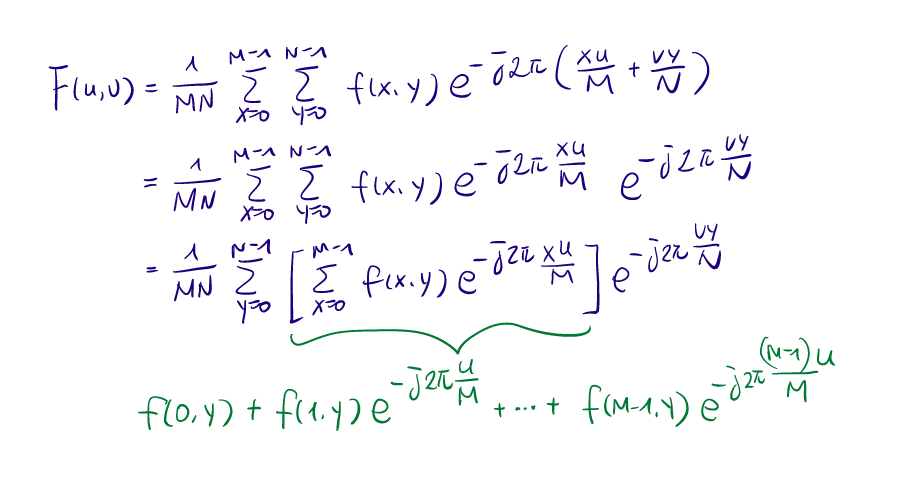 F(u,v) = 1/MN ∑_{x=0}^{M-1} ∑_{y=0}^{N-1} f(x,y) e^{-j2π(xu/M + vy/N)}
= 1/MN ∑_{x=0}^{M-1} ∑_{y=0}^{N-1} f(x,y) e^{-j2π xu/M} e^{-j2π vy/N}
= 1/MN ∑_{y=0}^{N-1} [∑_{x=0}^{M-1} f(x,y) e^{-j2π xu/M}] e^{-j2π vy/N}
f(0,y) + f(1,y) e^{-j2π u/M} + ... + f(M-1,y) e^{-j2π (M-1)u/M}